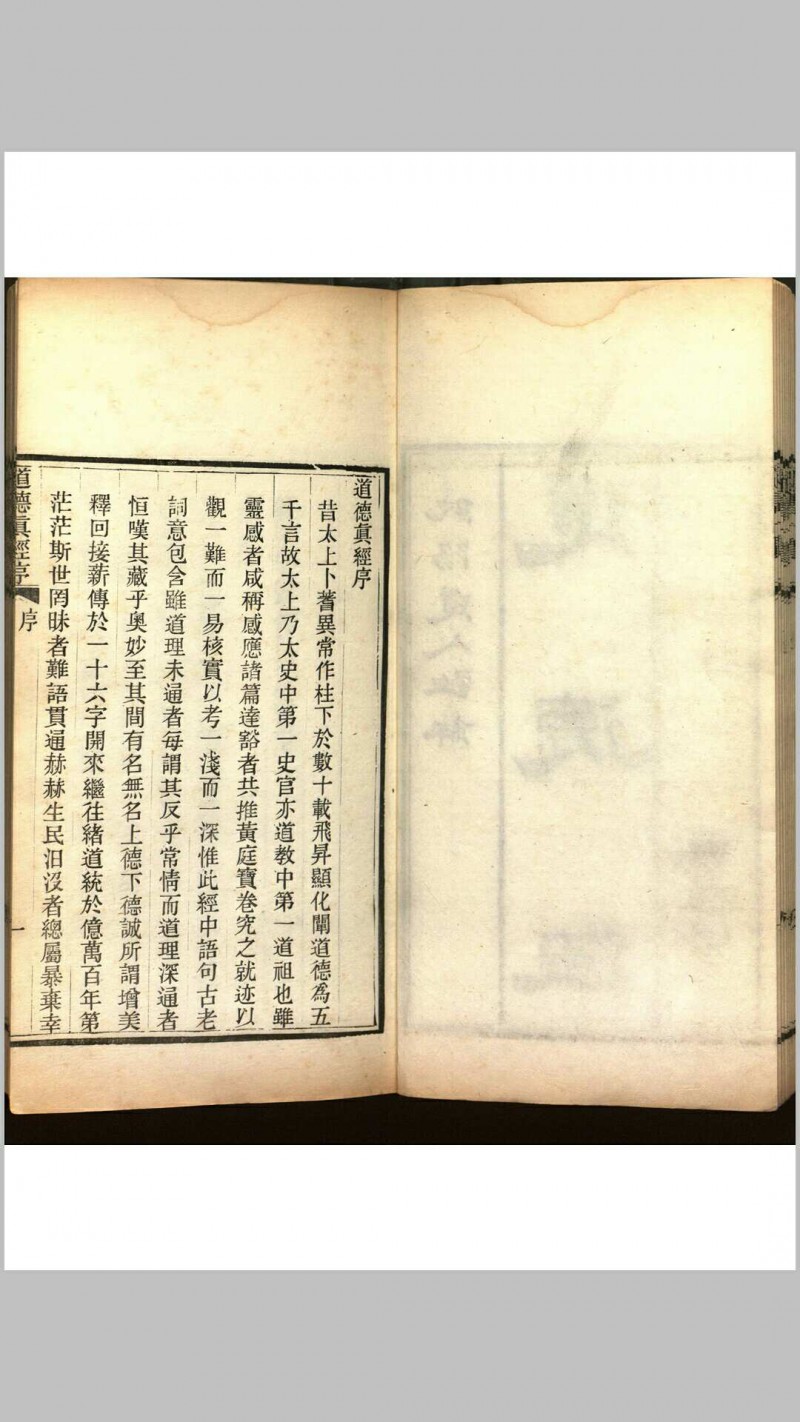 道德眞經序
昔太上卜蓍異常作柱下於數十載飛昇顯化闡道德爲五
千言故太上乃太史中第一史官亦道教中第一道祖也雖
靈感者咸稱感應諸篇達豁者共推黃庭寶卷究之就迹以
觀一難而一易核實以考一淺而一深惟此經中語句古老
詞意包含雖道理未通者每謂其反乎常情而道理深通者
恒嘆其藏乎奥妙至其間有名無名上德下德誠所謂增美
釋回接薪傳於一十六字開來繼往緒道統於億萬百年第
茫茫斯世罔昧者難語貫通赫赫生民汨沒者總屬暴棄幸
道德眞經序
序
一